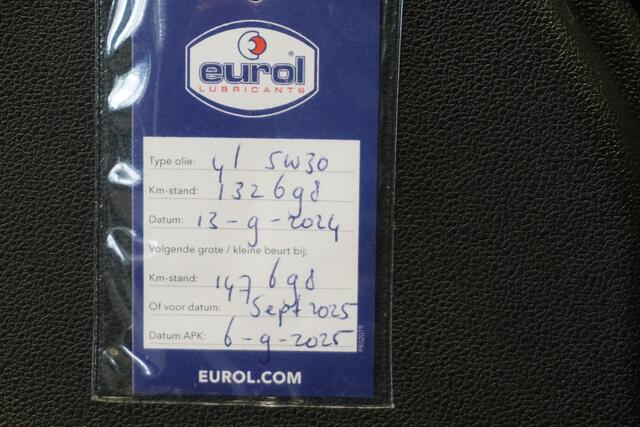 eurol
LUBRICANTS
Type olie: 4l 5W30
Km-stand: 132698
Datum: 13-9-2024
Volgende grote / kleine beurt bij:
Km-stand: 147698
Of voor datum: Sept 2025
Datum APK: 6-9-2025
PR02079
EUROL.COM